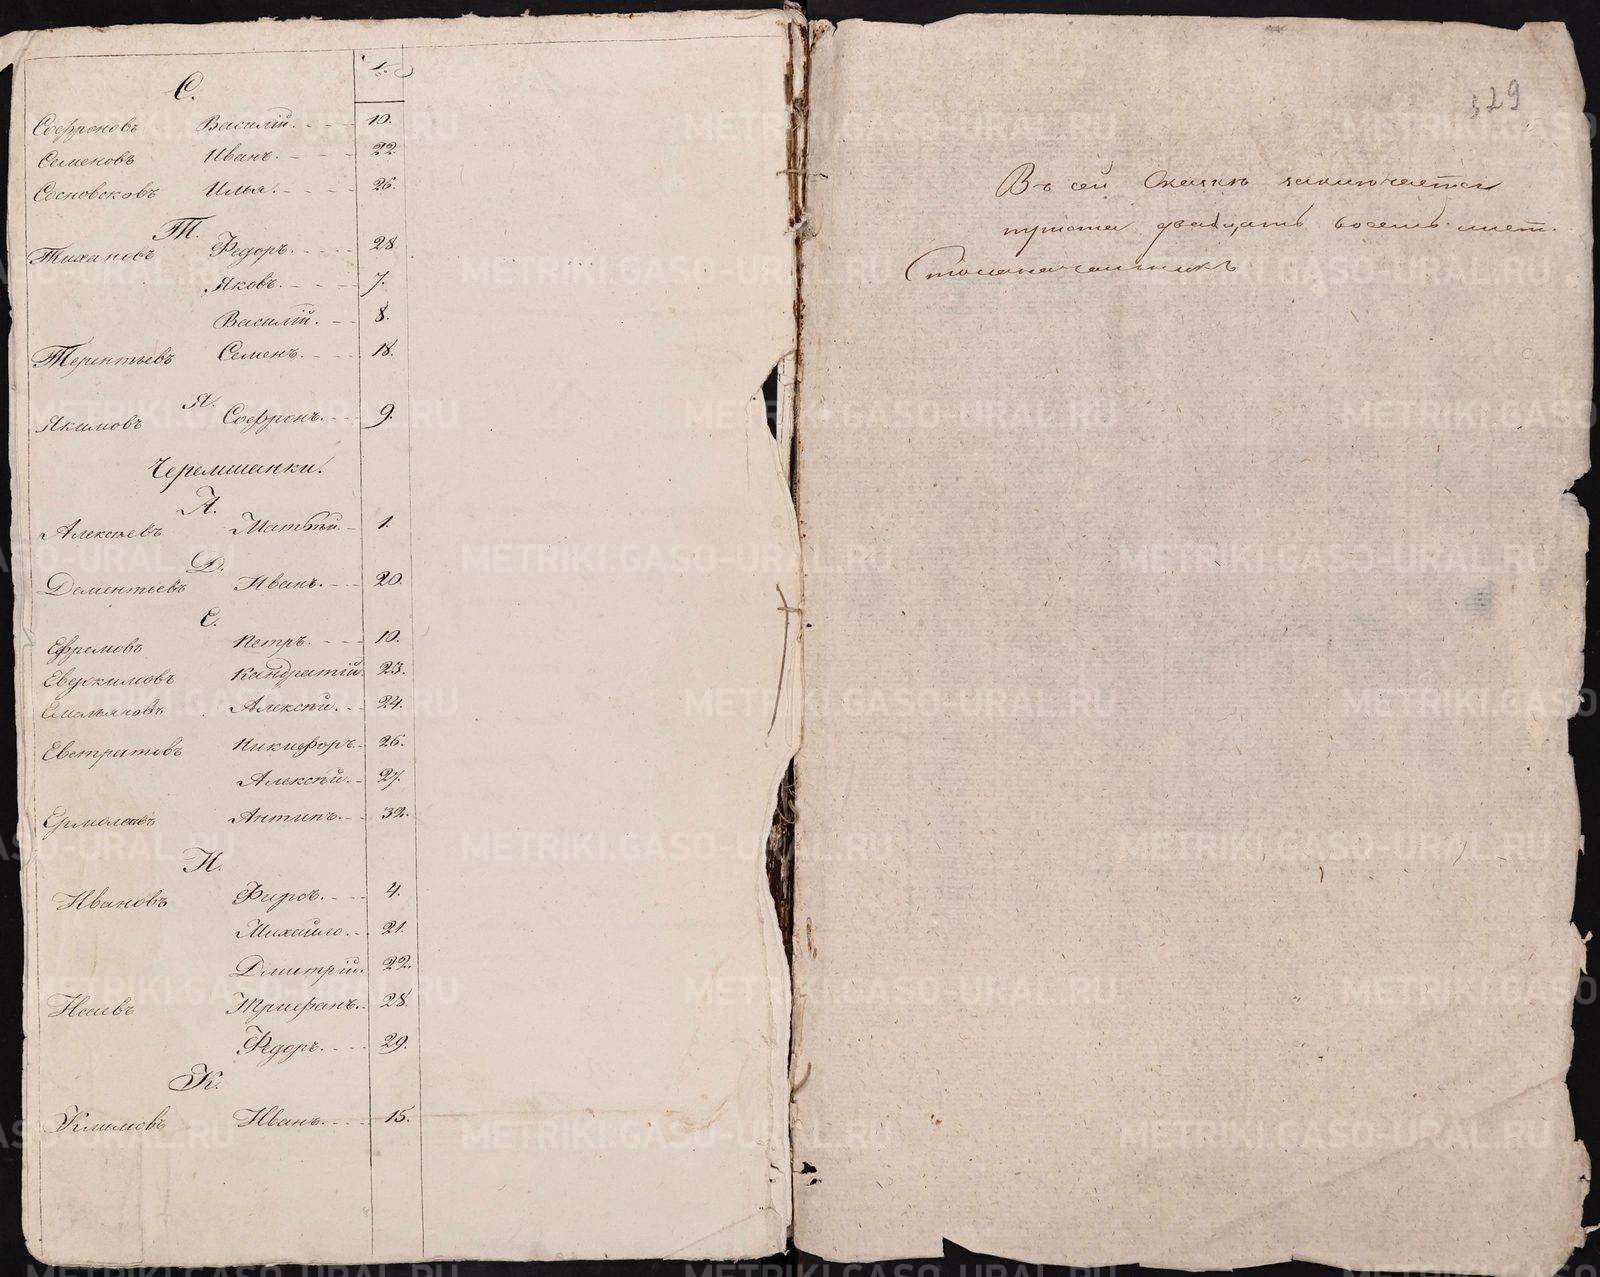 №
С.
Софроновъ Василій. 10.
Семеновъ Иванъ. 22.
Сосновсковъ Илья. 26.
Т.
Тихановъ Федоръ. 28.
Яковъ. 7.
Василій. 8.
Терентьевъ Семенъ. 18.
Я.
Якимовъ Софронъ. 9.
Черемшанки.
А.
Алексѣевъ Матвѣй. 1.
Д.
Дементьевъ Иванъ. 20.
Е.
Ефремовъ Петръ. 10.
Евдокимовъ Кандратій. 23.
Емельяновъ Алексѣй. 24.
Евстратовъ Никифоръ. 26.
Алексѣй. 27.
Ермолаевъ Антипъ. 32.
И.
Ивановъ Фирсъ. 4.
Михайло. 21.
Дмитрій. 22.
Исаевъ Трифанъ. 28.
Федоръ. 29.
К.
Климовъ Иванъ. 15.
329
Въ сей Сказкѣ заключается
триста двадцать восемь лист.
Столоначальникъ
METRIKI.GASO-URAL.RU